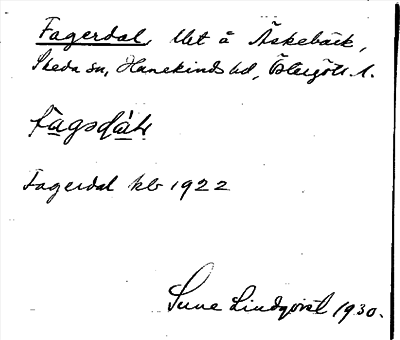 Fagerdal, lht å Äskebäck,
Skeda sn, Hanekinds hd, Östergötl. l.
fagədàl
Fagerdal kb 1922
Sune Lindqvist 1930.